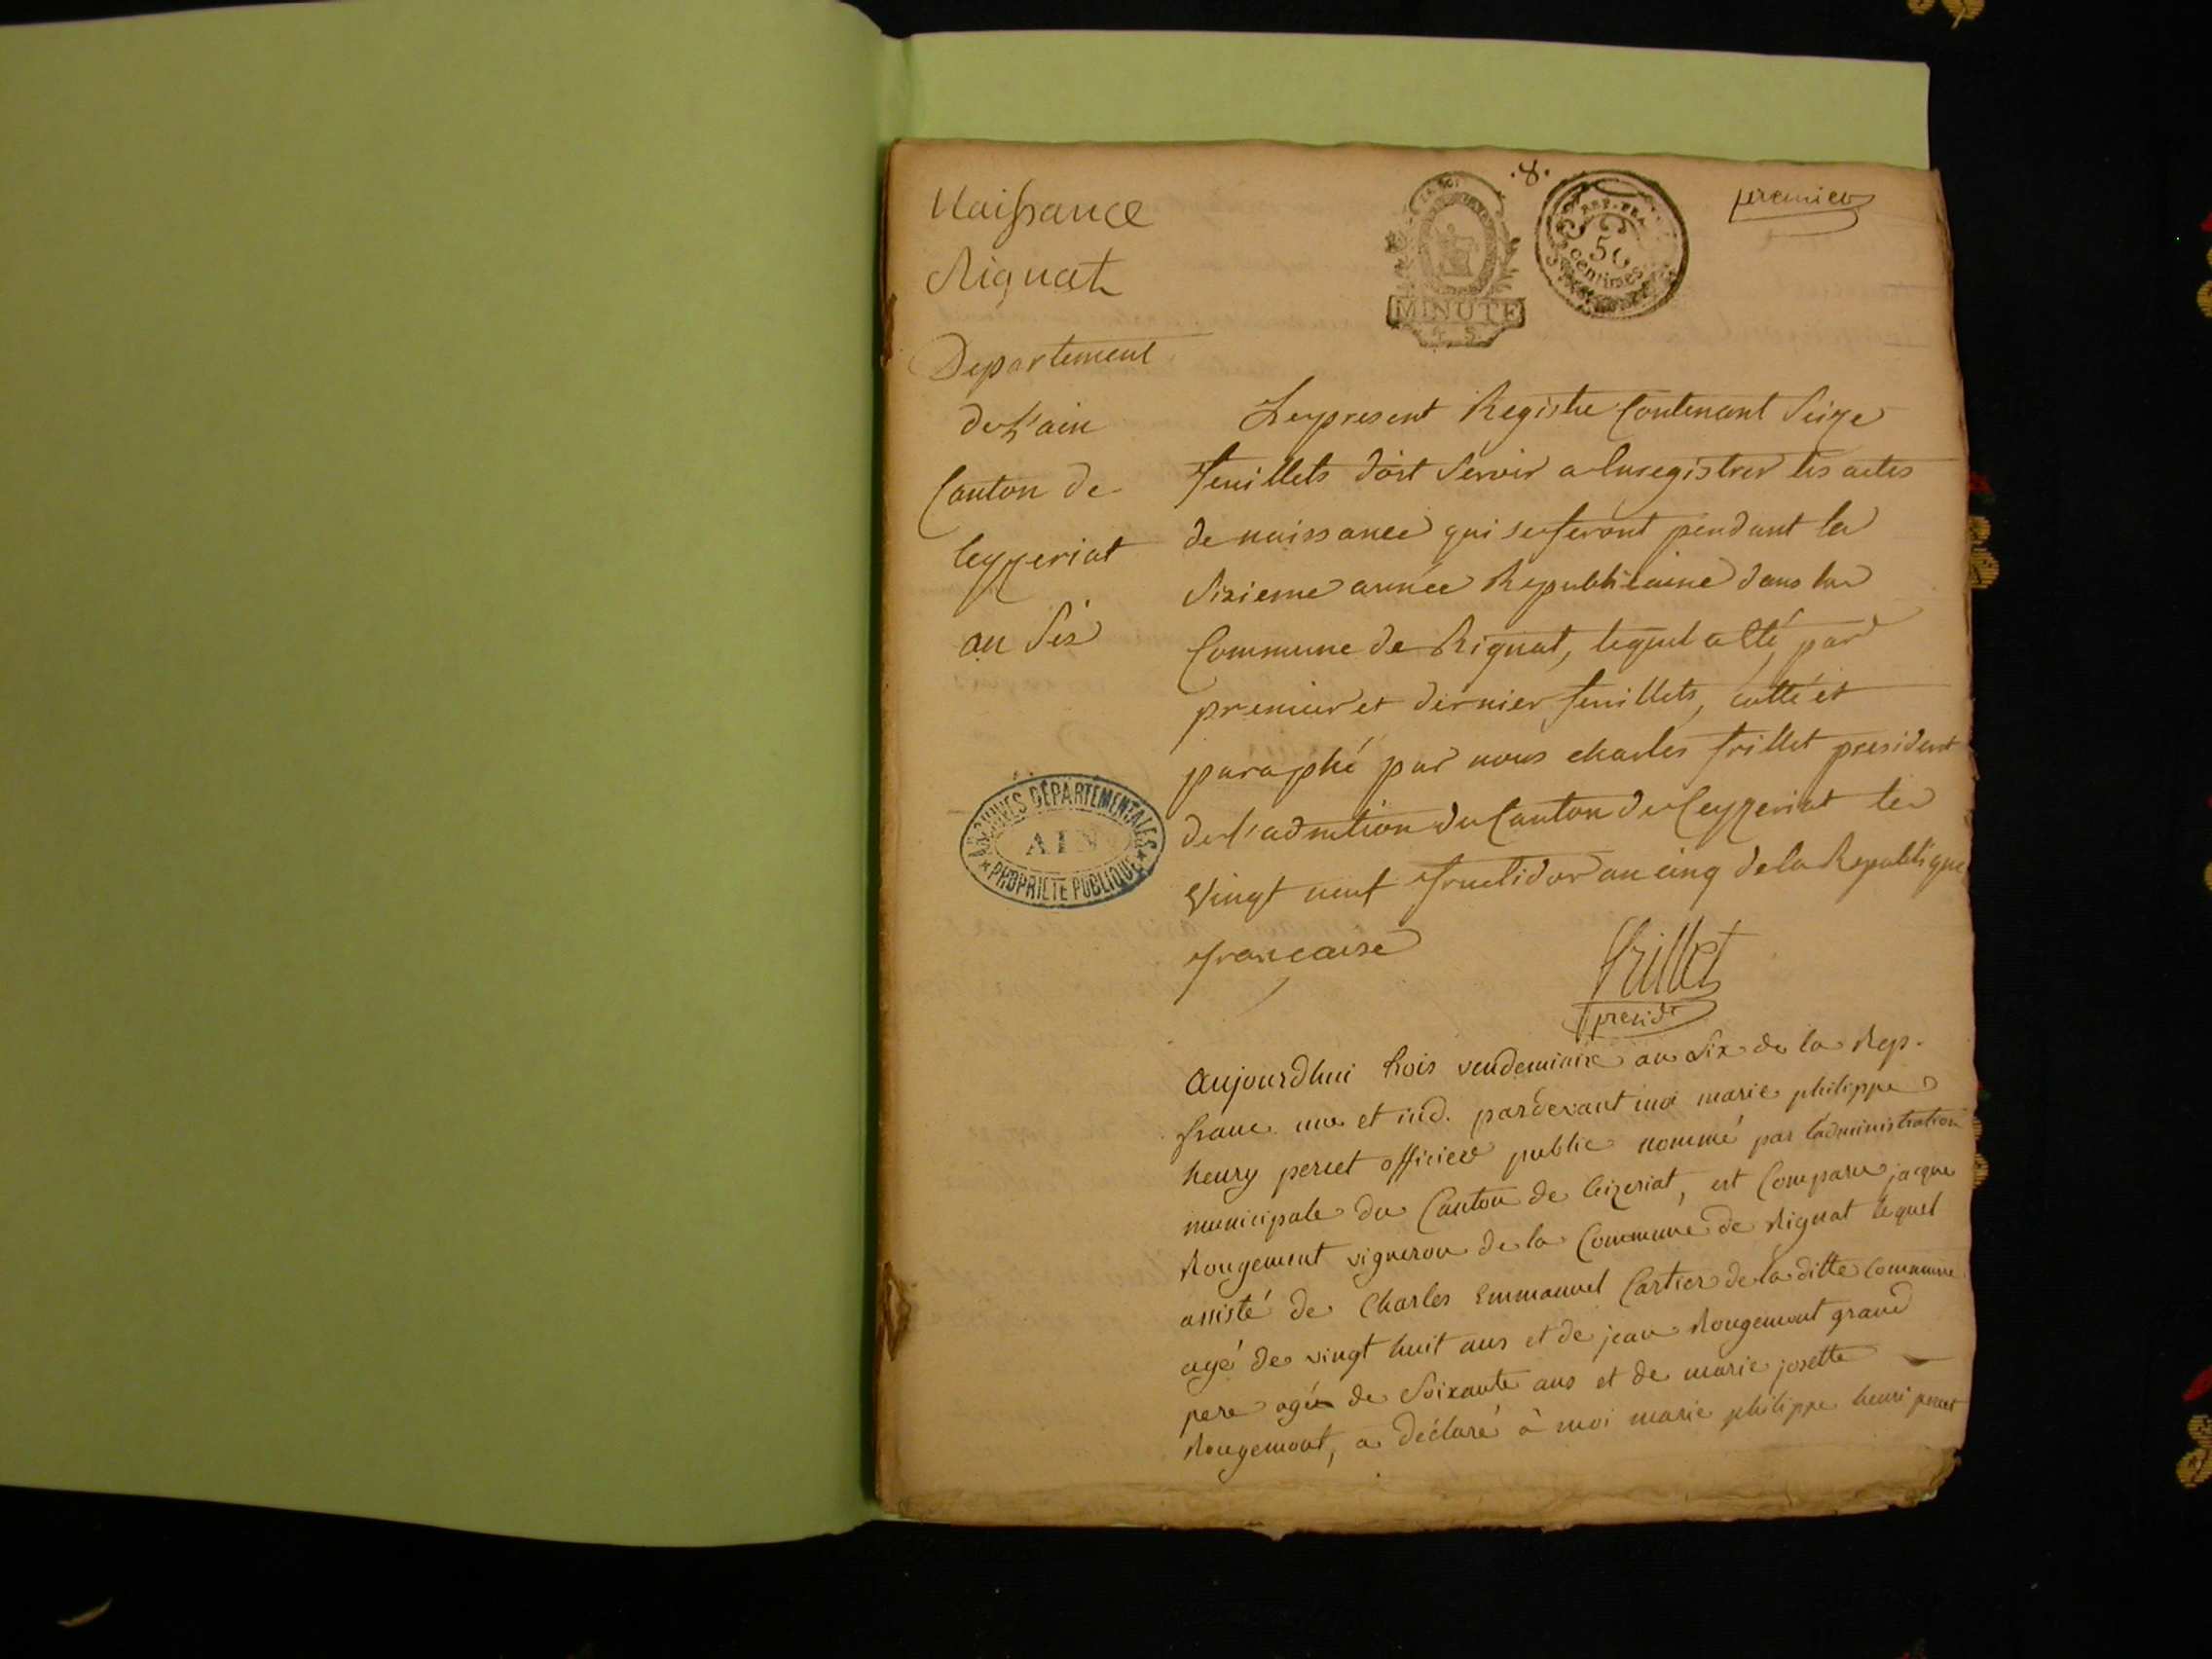 Naissance
Rignat
Departement
de L'ain
Canton de
Ceyzeriat
an Six
.8.
MINUTE
REP. FRA
50
centimes
premier
ARCHIVES DÉPARTEMENTALES
AIN
PROPRIÉTÉ PUBLIQUE
Le present Registre Contenant Seize
feuillets doit Servir a Enregistrer les actes
de naissance qui se feront pendant la
Sixieme année Republicaine dans la
Commune de Rignat, lequel a Eté, par
premier et dernier feuillets, cotté et
paraphé par nous charles frillet president
de l'admtion du Canton de Ceyzeriat le
Vingt neuf fructidor an cinq de la Republique
francaise
frillet
presidt
Aujourdhui trois vendemiaire an Six de la Rep.
franc. une et ind. pardevant moi marie philippe
henry percet officier public nommé par l'administration
municipale du Canton de Ceizeriat, est Comparu jacque
Rougemont vigneron de la Commune de Rignat lequel
assisté de Charles Emmanuel Cartier de la ditte Commune
agé de vingt huit ans et de jean Rougemont grand
pere agé de Soixante ans et de marie josette
Rougemont, a déclaré à moi marie philippe henri percet